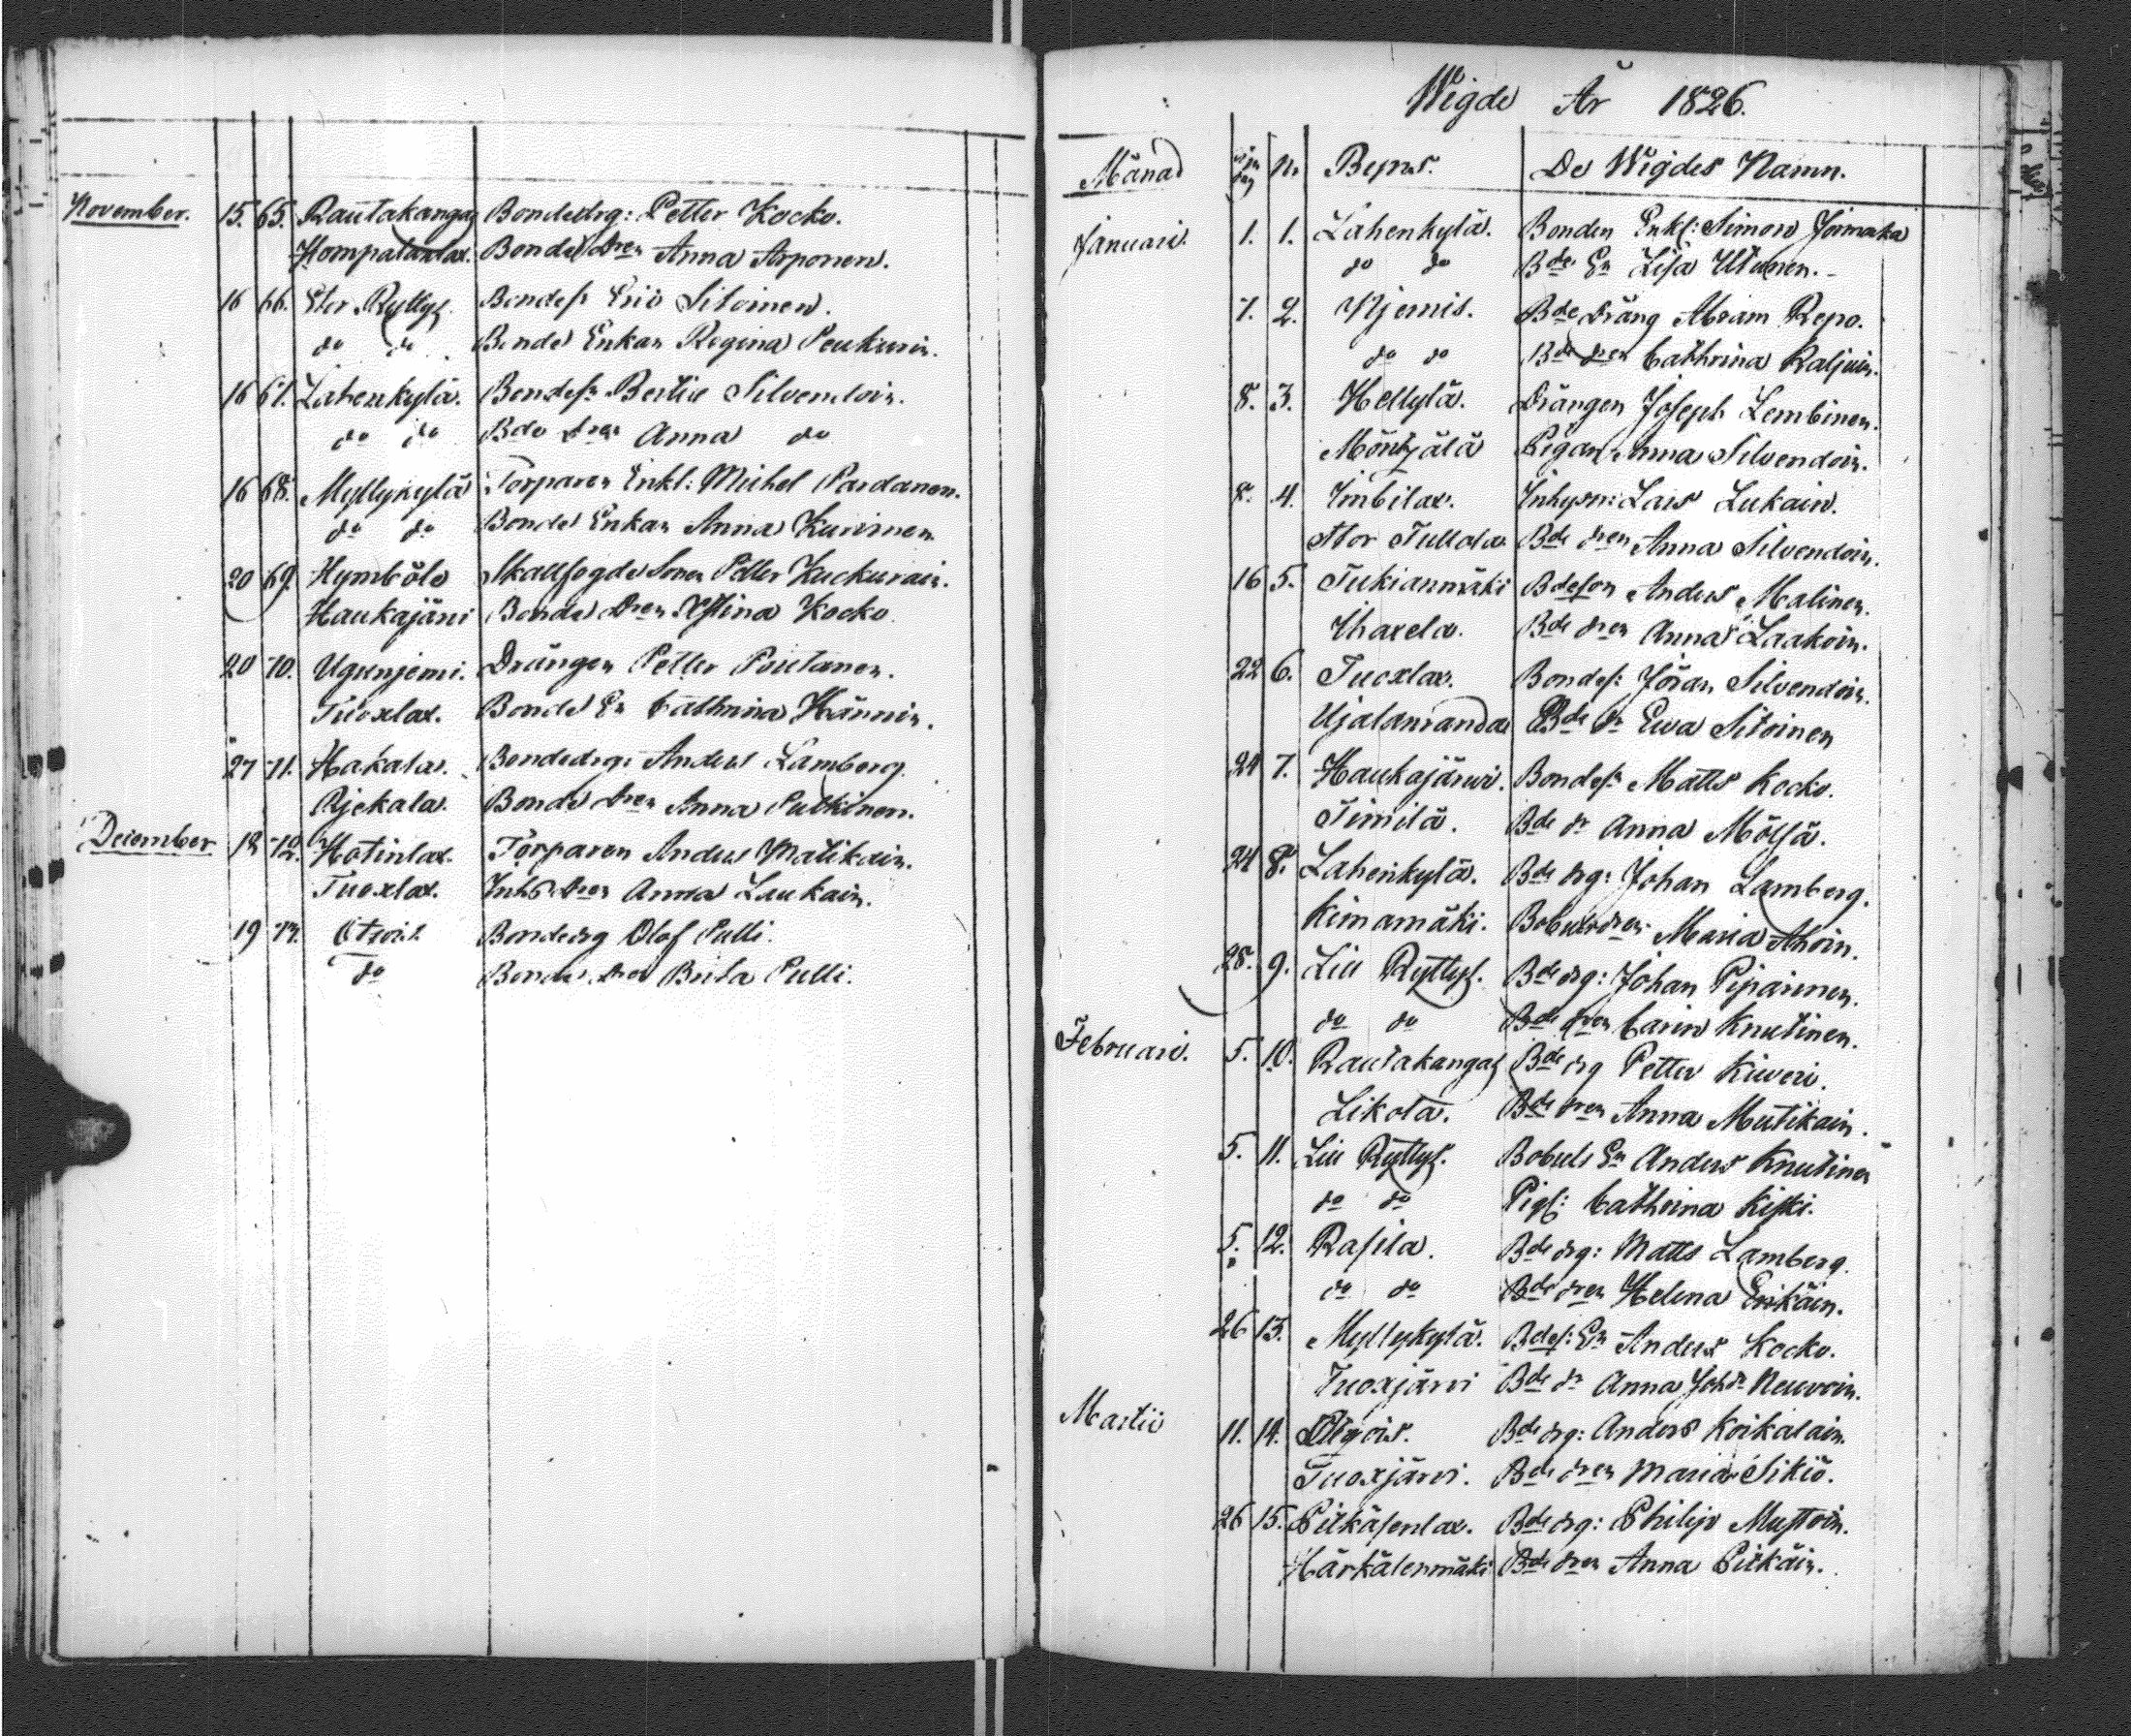 November. 15. 65. Rautakangas Bondedrg: Petter Kocko.
Kompalanlax. Bonde Dren Anna Arponen.
16 66. Stor Ryttys. Bondes: Eric Sitoinen.
do do Bonde Enkan Regina Peukurin.
16 67. Lahenkylä. Bondesn Bertil Silvendoin.
do do Bde dren Anna do
16 68. Myllykylä Torparen Enkl: Michel Pardanen.
do do Bonde Enkan Anna Kurimen
20 69. Hymböle Skallfogde Sonen Petter Kuckurain.
Haukajärvi Bonde Dren Stina Kocko.
20 70. Ugunjemi. Drängen Petter Poutanen.
Tuoxlax. Bonde En Cathrina Hännin.
27 71. Hakala. Bondedrg: Anders Lamberg.
Rjekala. Bonde Dren Anna Putkinen.
December 18 72. Hotinlax. Torparen Anders Matikain.
Tuoxlax. Inhs Dren Anna Laukain.
19 73. Otsois Bondedrg Olof Pulli.
do Bonde Dren Brita Pulli.
Wigde År 1826.
Månad dag N. Byns. De Wigdes Namn.
Januari. 1. 1. Lahenkylä. Bonden Enkl: Simon Joinaka
do do Bde En Lisa Utunen.
7. 2. Njemis. Bde Dräng Abram Repo.
do do Bde dren Cathrina Raljuin.
8. 3. Hellylä. Drängen Joseph Lembinen.
Möntzälä Pigan Anna Silvendoin.
8. 4. Imbilax. Inhysn: Lars Lukain.
Stor Tullola Bde dren Anna Silvendoin.
16 5. Tukianmäki Bdeson Anders Malinen.
Thaxela. Bde dren Anna Laakoin.
22 6. Tuoxlax. Bondes: Jöran Silvendoin.
Ujalanranda Bde dr Ewa Sitoinen
24 7. Haukajärwi. Bondesn Matts Kocko.
Timilä. Bde dr Anna Mölsä.
24 8. Lahenkylä. Bde drg: Johan Lamberg.
Kinamäki. Bobuls dren Maria Ahoin.
28. 9. Lill Ryttys. Bde drg: Johan Piparinen.
do do Bde dren Carin Knutinen.
Februari. 5. 10. Rautakangas Bde drg Petter Kiweri.
Likola. Bde dren Anna Mutikain.
5. 11. Lill Ryttys. Bobuls En Anders Knutinen
do do Pigs: Cathrina Kiski.
5. 12. Rasila. Bde drg: Matts Lamberg.
do do Bde dren Helena Erikäin.
26 13. Myllykylä. Bdes: En Anders Kocko.
Tuoxjärvi Bde dr Anna Johdr Neuvoin.
Martii 11. 14. Otsois. Bde drg: Anders Koikalain.
Tuoxjärvi. Bde dren Maria Sikiö.
26 15. Pitkäsenlax. Bde drg: Philip Mustoin.
Härkälenmäki Bde dren Anna Pitkäin.